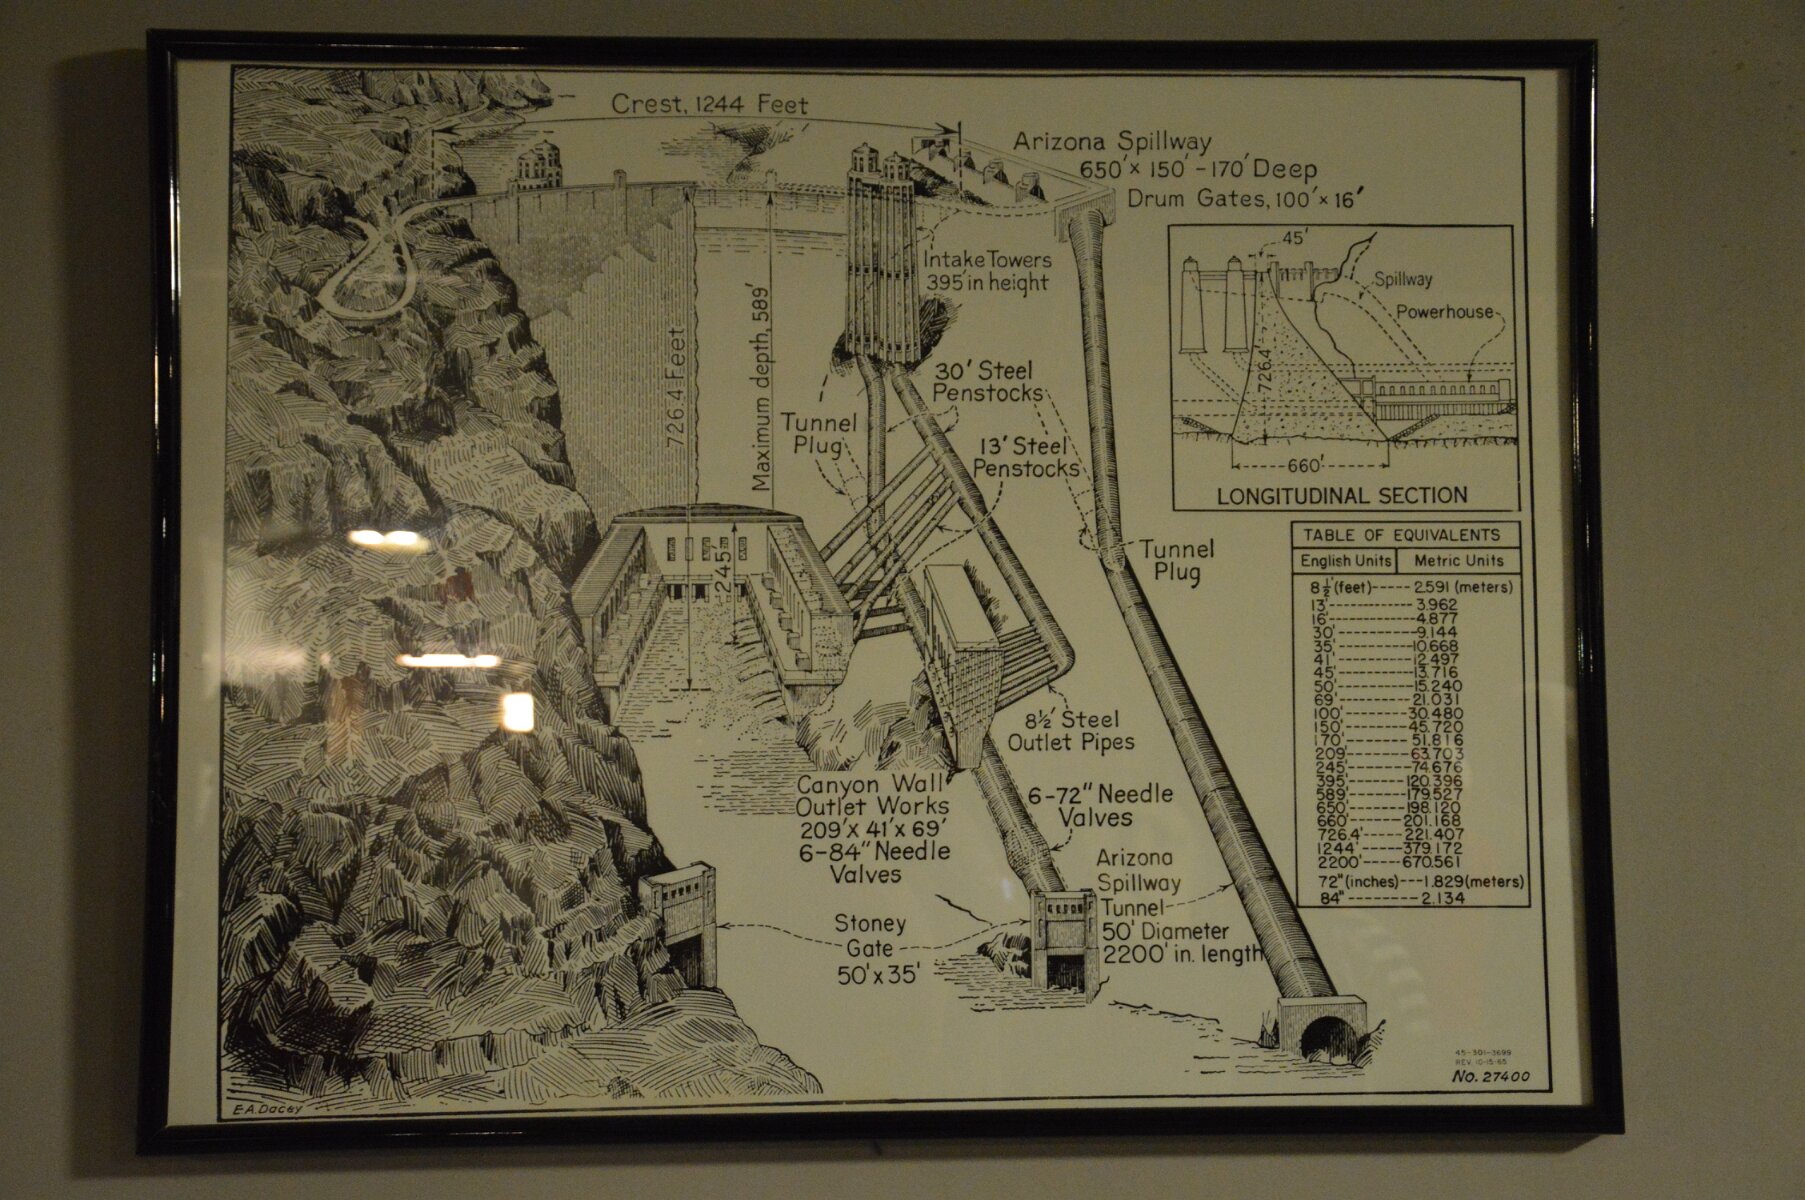 Crest, 1244 Feet
Arizona Spillway
650'x 150' - 170' Deep
Drum Gates, 100' x 16'
Intake Towers
395' in height
726.4 Feet
Maximum depth, 589'
30' Steel
Penstocks
Tunnel
Plug
13' Steel
Penstocks
245'
Tunnel
Plug
8½' Steel
Outlet Pipes
Canyon Wall
Outlet Works
209'x 41'x 69'
6-84" Needle
Valves
6-72" Needle
Valves
Arizona
Spillway
Tunnel
50' Diameter
2200' in. length
Stoney
Gate
50'x 35'
45'
Spillway
Powerhouse
726.4'
660'
LONGITUDINAL SECTION
TABLE OF EQUIVALENTS
English Units Metric Units
8½'(feet)-----2.591 (meters)
13'----------3.962
16'----------4.877
30'----------9.144
35'---------10.668
41'---------12.497
45'---------13.716
50'---------15.240
69'---------21.031
100'--------30.480
150'--------45.720
170'--------51.816
209'--------63.703
245'--------74.676
395'-------120.396
589'-------179.527
650'-------198.120
660'-------201.168
726.4'-----221.407
1244'-----379.172
2200'-----670.561
72"(inches)---1.829(meters)
84"---------2.134
45-301-3699
REV. 10-15-65
No. 27400
E.A. Dacey